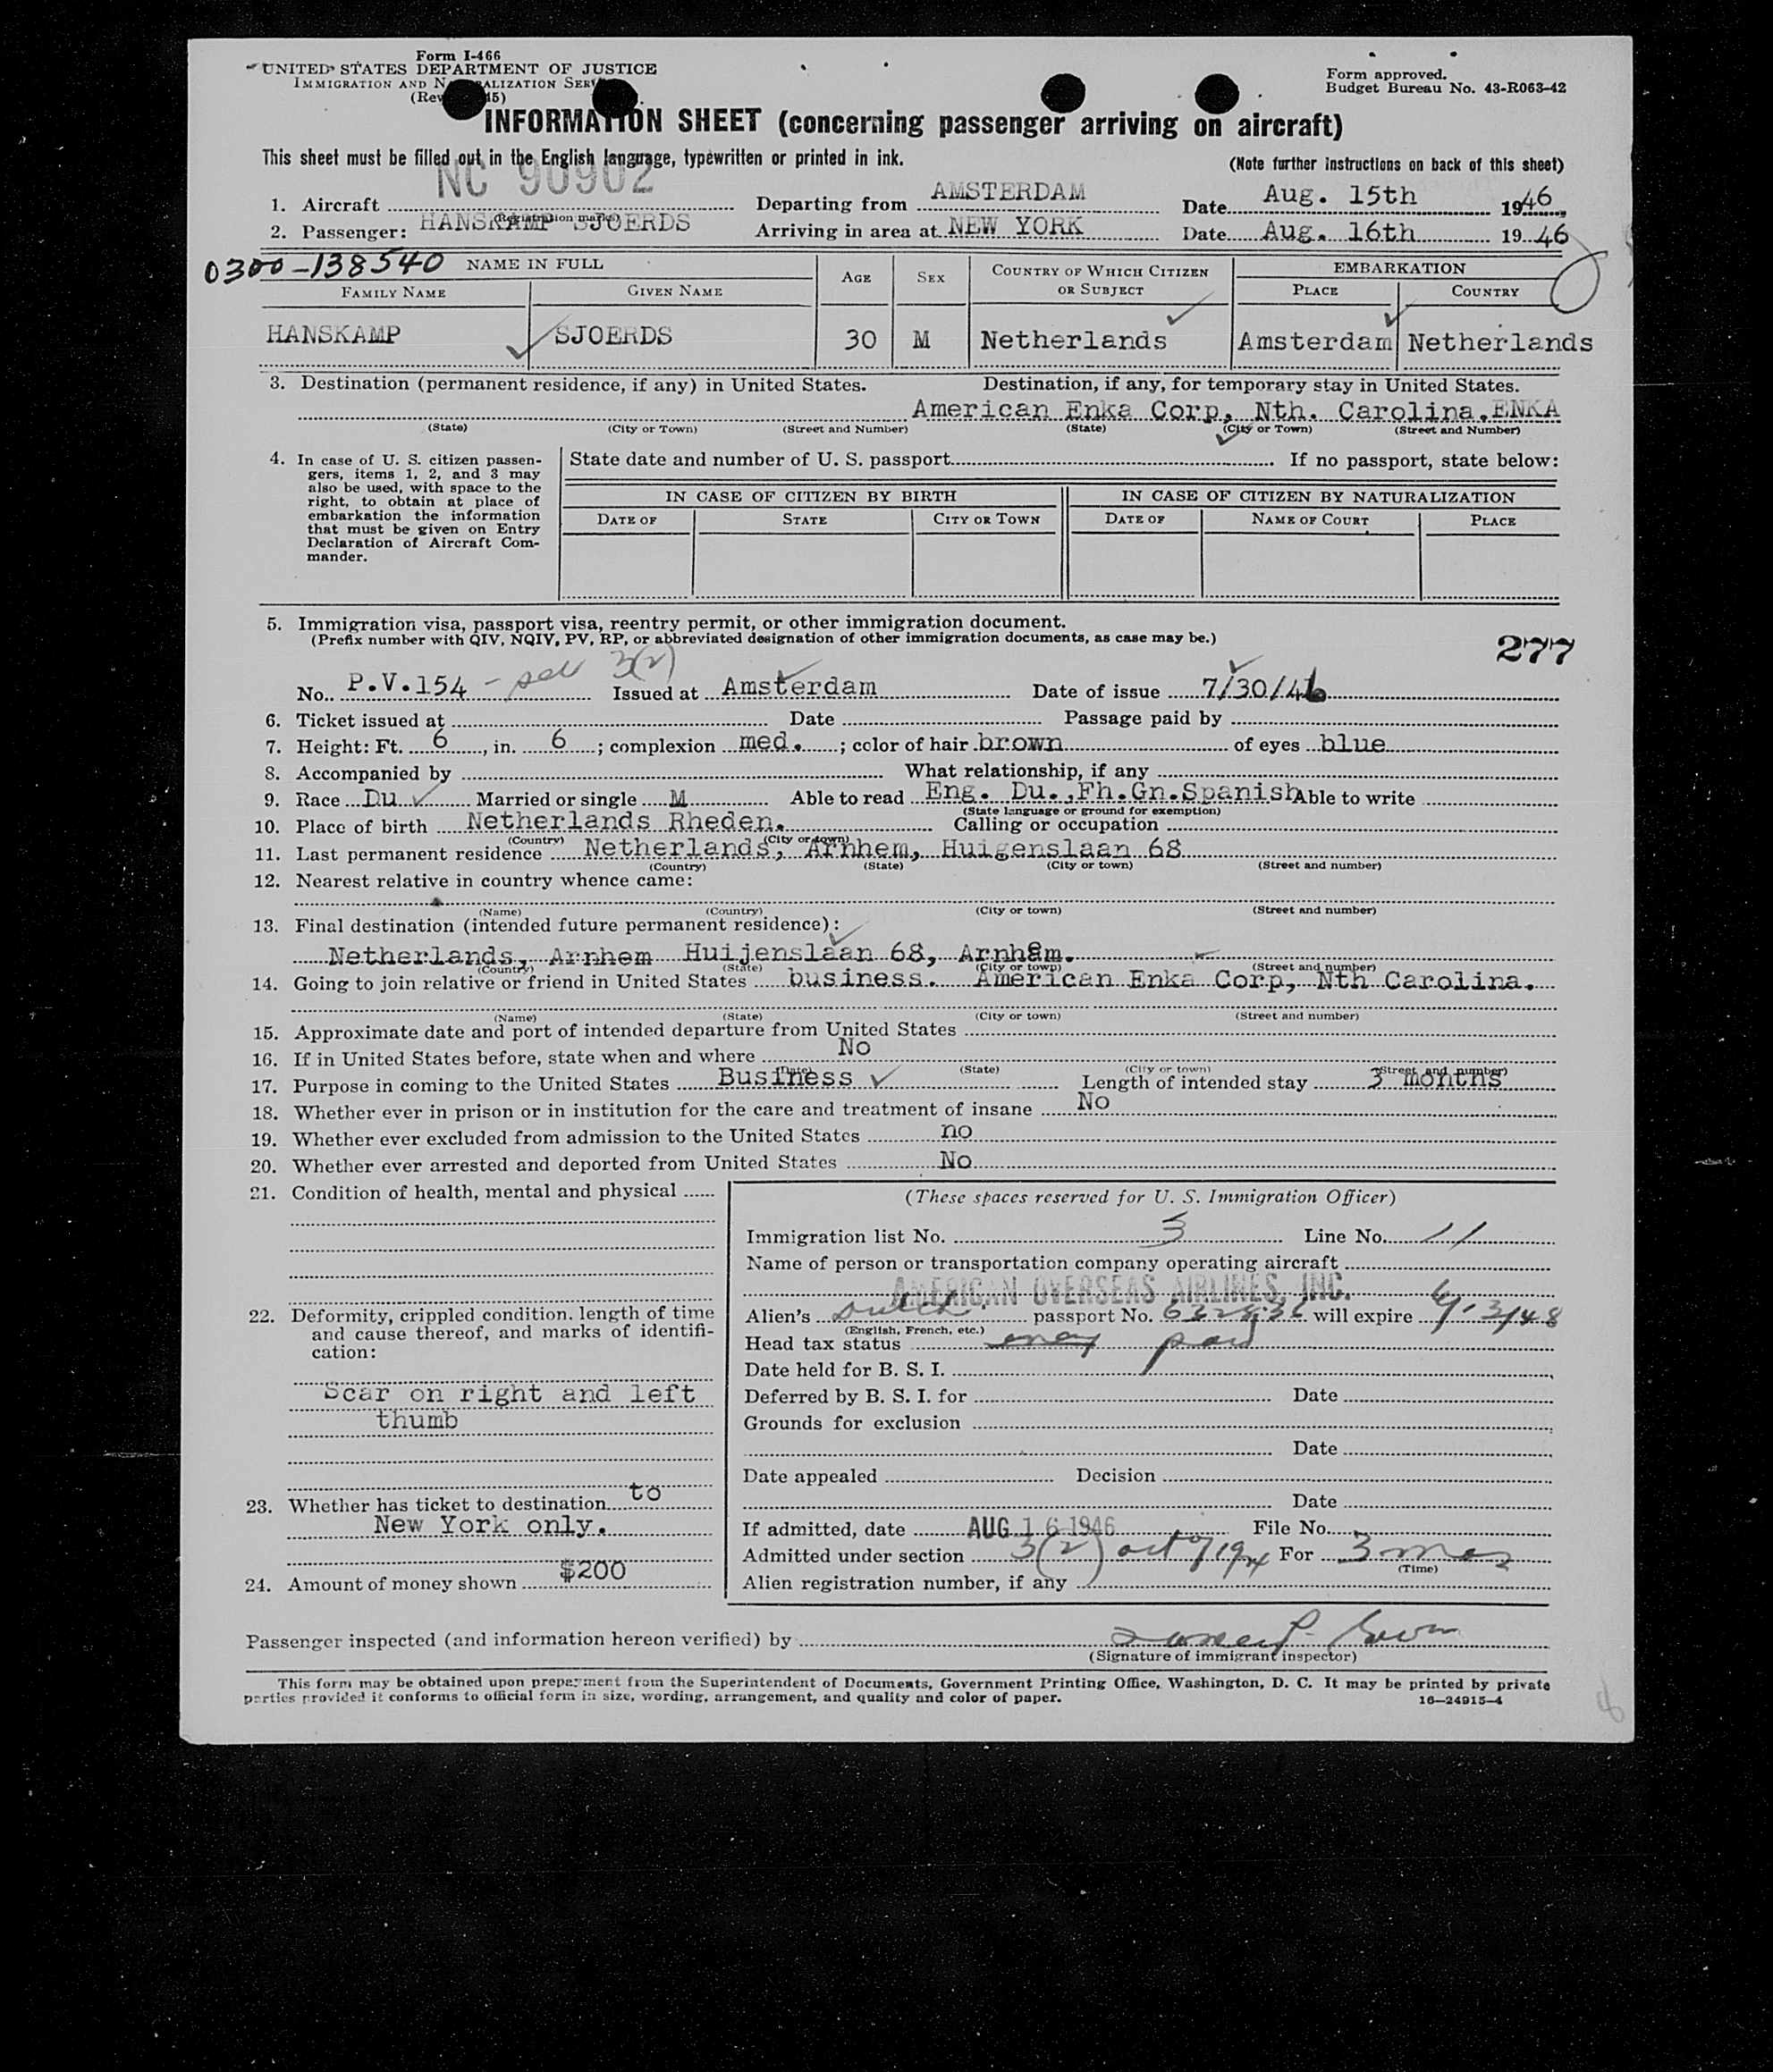 Form I-466
UNITED STATES DEPARTMENT OF JUSTICE
IMMIGRATION AND NATURALIZATION SERVICE
Form approved.
Budget Bureau No. 43-R063-42
INFORMATION SHEET (concerning passenger arriving on aircraft)
This sheet must be filled out in the English language, typewritten or printed in ink.
(Note further instructions on back of this sheet)
1. Aircraft NC 90902 Departing from AMSTERDAM Date Aug. 15th 1946
(Registration marks)
2. Passenger: HANSKAMP SJOERDS Arriving in area at NEW YORK Date Aug. 16th 1946
0300-138540 NAME IN FULL AGE SEX COUNTRY OF WHICH CITIZEN OR SUBJECT EMBARKATION
FAMILY NAME GIVEN NAME PLACE COUNTRY
HANSKAMP SJOERDS 30 M Netherlands Amsterdam Netherlands
3. Destination (permanent residence, if any) in United States. Destination, if any, for temporary stay in United States.
American Enka Corp, Nth. Carolina. ENKA
(State) (City or Town) (Street and Number) (State) (City or Town) (Street and Number)
4. In case of U. S. citizen passen-
gers, items 1, 2, and 3 may
also be used, with space to the
right, to obtain at place of
embarkation the information
that must be given on Entry
Declaration of Aircraft Com-
mander.
State date and number of U. S. passport. If no passport, state below:
IN CASE OF CITIZEN BY BIRTH IN CASE OF CITIZEN BY NATURALIZATION
DATE OF STATE CITY OR TOWN DATE OF NAME OF COURT PLACE
5. Immigration visa, passport visa, reentry permit, or other immigration document.
(Prefix number with QIV, NQIV, PV, RP, or abbreviated designation of other immigration documents, as case may be.)
277
3(2)
No. P.V.154 - Issued at Amsterdam Date of issue 7/30/46
6. Ticket issued at Date Passage paid by
7. Height: Ft. 6, in. 6; complexion med.; color of hair brown of eyes blue
8. Accompanied by What relationship, if any
9. Race Du Married or single M Able to read Eng. Du.,Fh.Gn.Spanish Able to write
(State language or ground for exemption)
10. Place of birth Netherlands Rheden. Calling or occupation
(Country) (City or town)
11. Last permanent residence Netherlands, Arnhem, Huigenslaan 68
(Country) (State) (City or town) (Street and number)
12. Nearest relative in country whence came:
(Name) (Country) (City or town) (Street and number)
13. Final destination (intended future permanent residence):
Netherlands, Arnhem Huijenslaan 68, Arnhem.
(Country) (State) (City or town) (Street and number)
14. Going to join relative or friend in United States business. American Enka Corp, Nth Carolina.
(Name) (State) (City or town) (Street and number)
15. Approximate date and port of intended departure from United States
16. If in United States before, state when and where No
(Date) (State) (City or town) (Street and number)
17. Purpose in coming to the United States Business Length of intended stay 3 months
18. Whether ever in prison or in institution for the care and treatment of insane No
19. Whether ever excluded from admission to the United States no
20. Whether ever arrested and deported from United States No
21. Condition of health, mental and physical
22. Deformity, crippled condition. length of time
and cause thereof, and marks of identifi-
cation:
Scar on right and left
thumb
23. Whether has ticket to destination to
New York only.
24. Amount of money shown $200
(These spaces reserved for U. S. Immigration Officer)
Immigration list No. 3 Line No. 11
Name of person or transportation company operating aircraft
AMERICAN OVERSEAS AIRLINES, INC.
Alien's Dutch passport No. will expire
(English, French, etc.)
Head tax status paid
Date held for B. S. I.
Deferred by B. S. I. for Date
Grounds for exclusion
Date
Date appealed Decision
Date
If admitted, date AUG 16 1946 File No.
Admitted under section 3(2) act of 1924 For 3 mos
(Time)
Alien registration number, if any
Passenger inspected (and information hereon verified) by
(Signature of immigrant inspector)
This form may be obtained upon prepayment from the Superintendent of Documents, Government Printing Office, Washington, D. C. It may be printed by private
parties provided it conforms to official form in size, wording, arrangement, and quality and color of paper. 16—24915-4